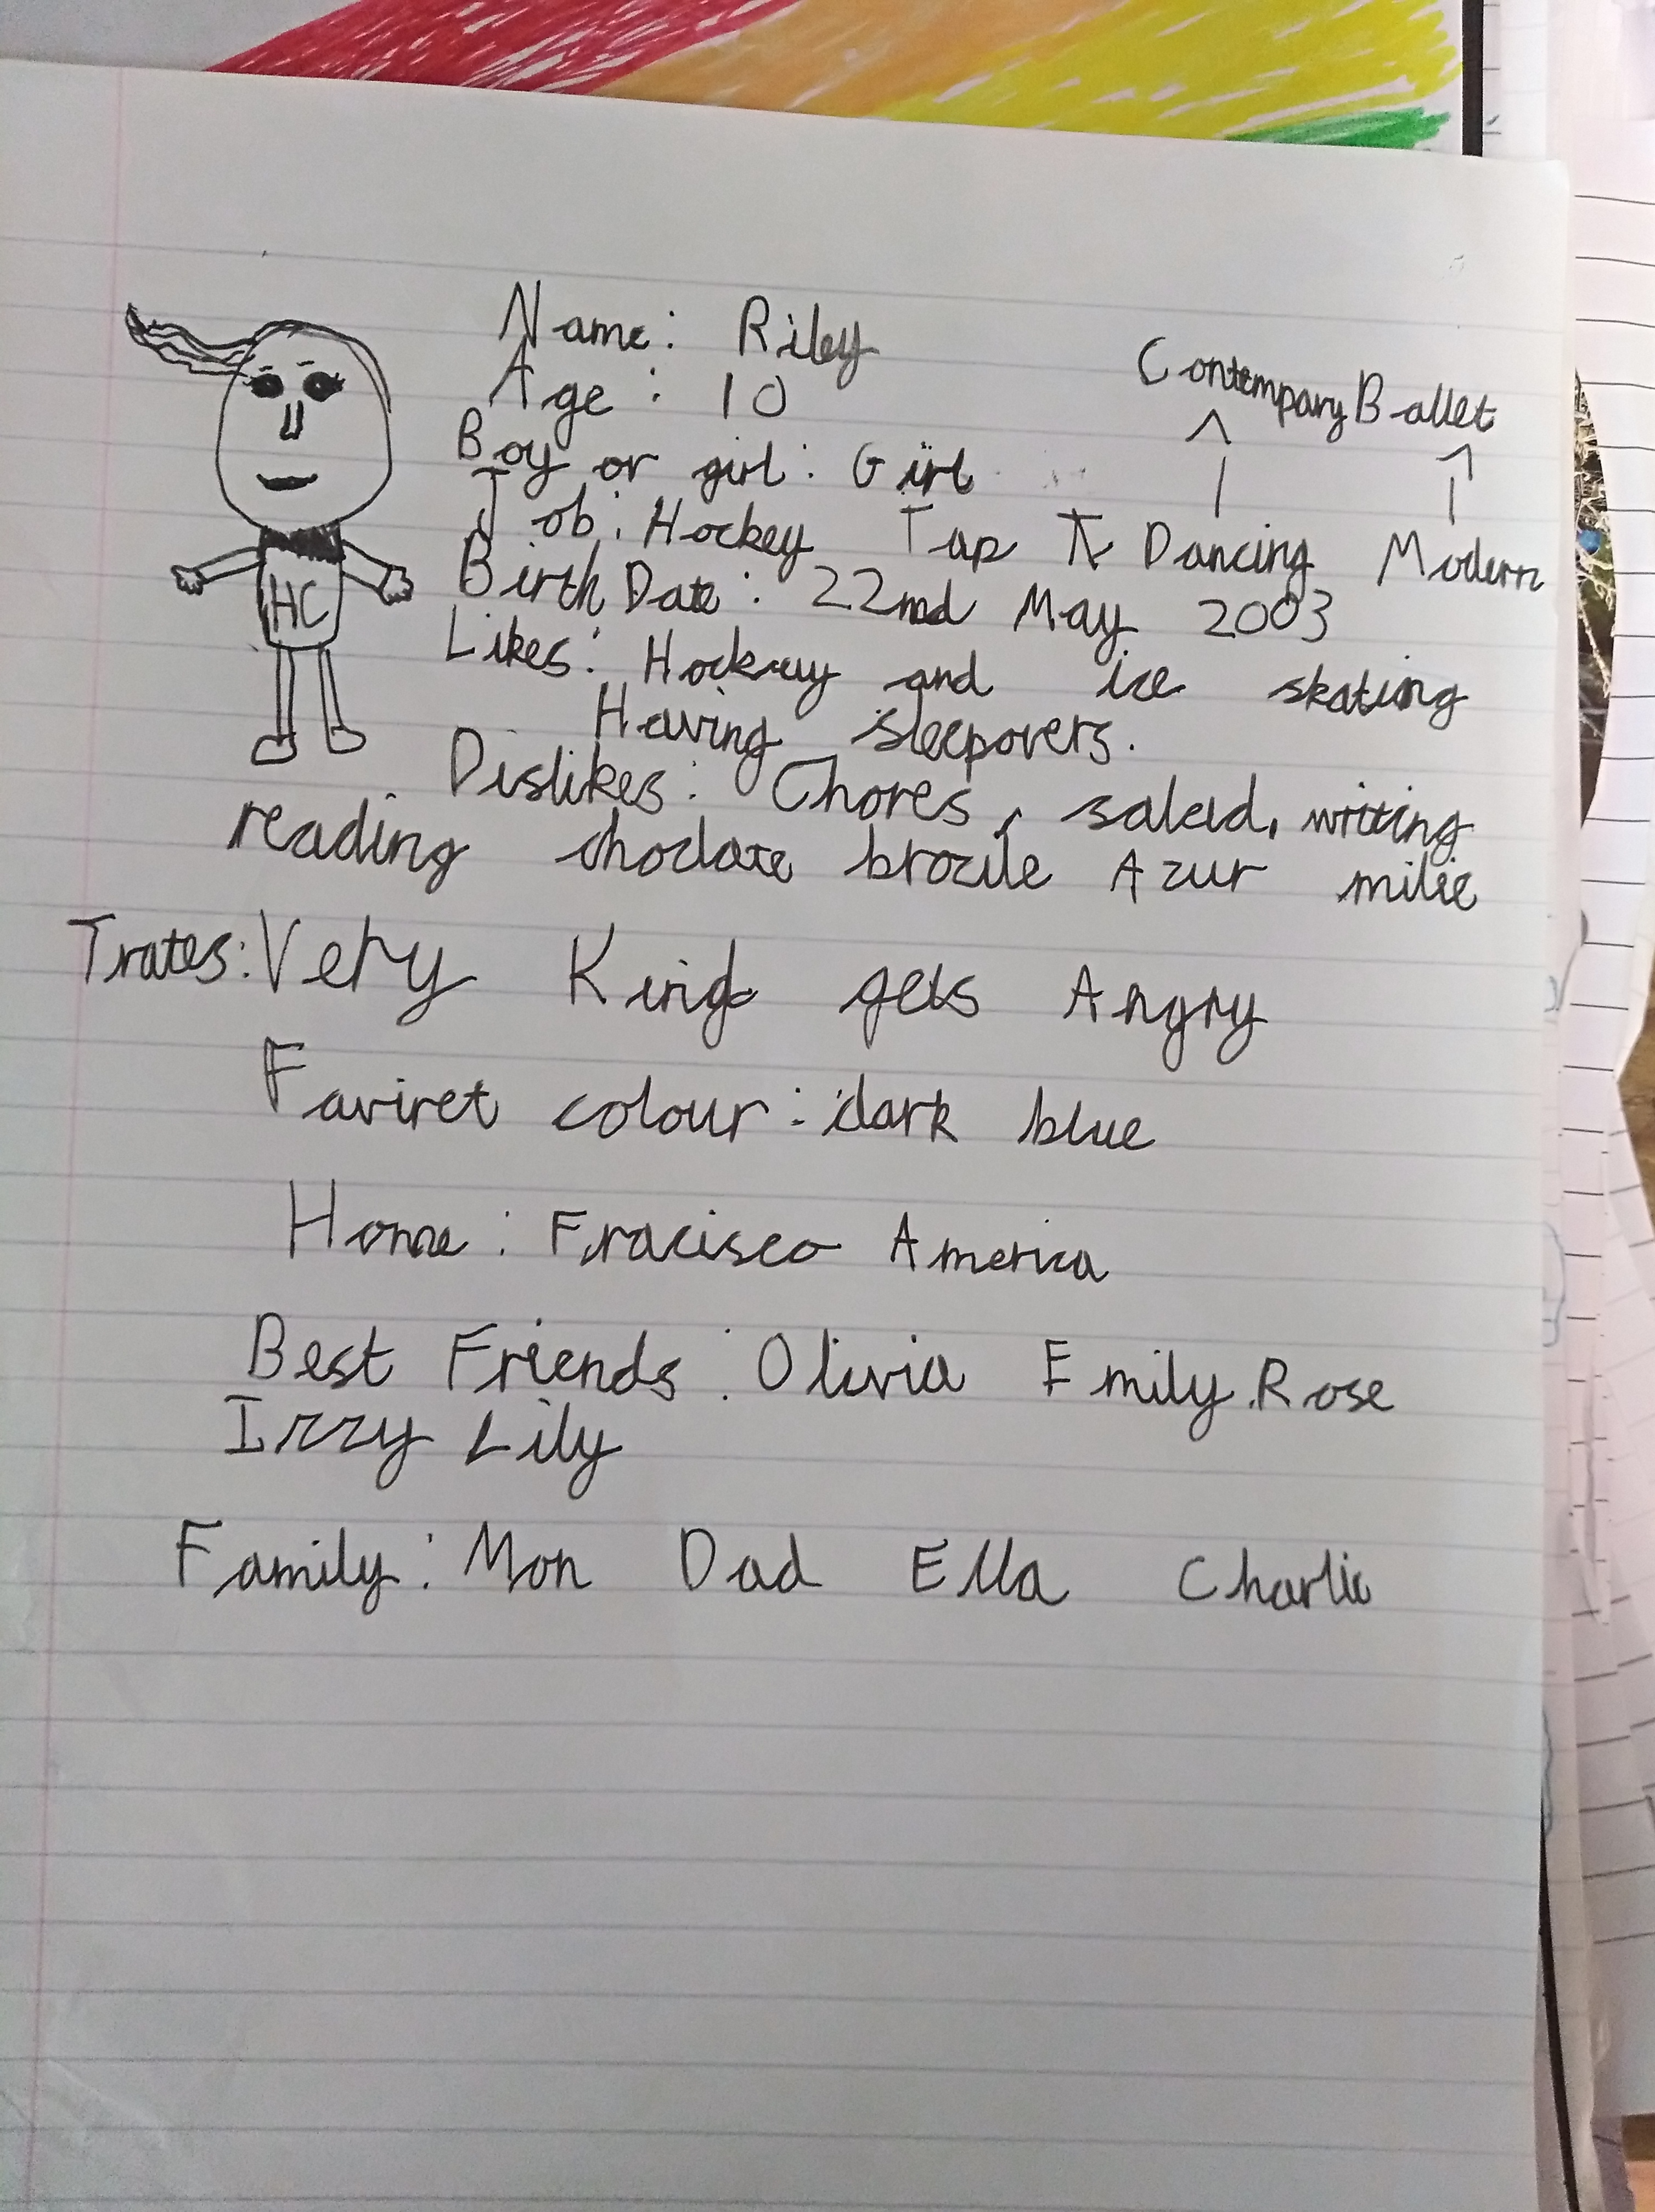 Name: Riley
Contempary Ballet
Age: 10
Boy or girl: Girl
Job: Hockey Tap Dancing Modern
HC
Birth Date: 22nd May 2003
Likes: Hockey and ice skating
Having sleepovers.
Dislikes: Chores, salad, writing
reading choclate brocile Azur milie
Trates: Very Kind gets Angry
Faviret colour: dark blue
Home: Fracisco America
Best Friends: Olivia Emily.Rose
Izzy Lily
Family: Mon Dad Ella Charlie